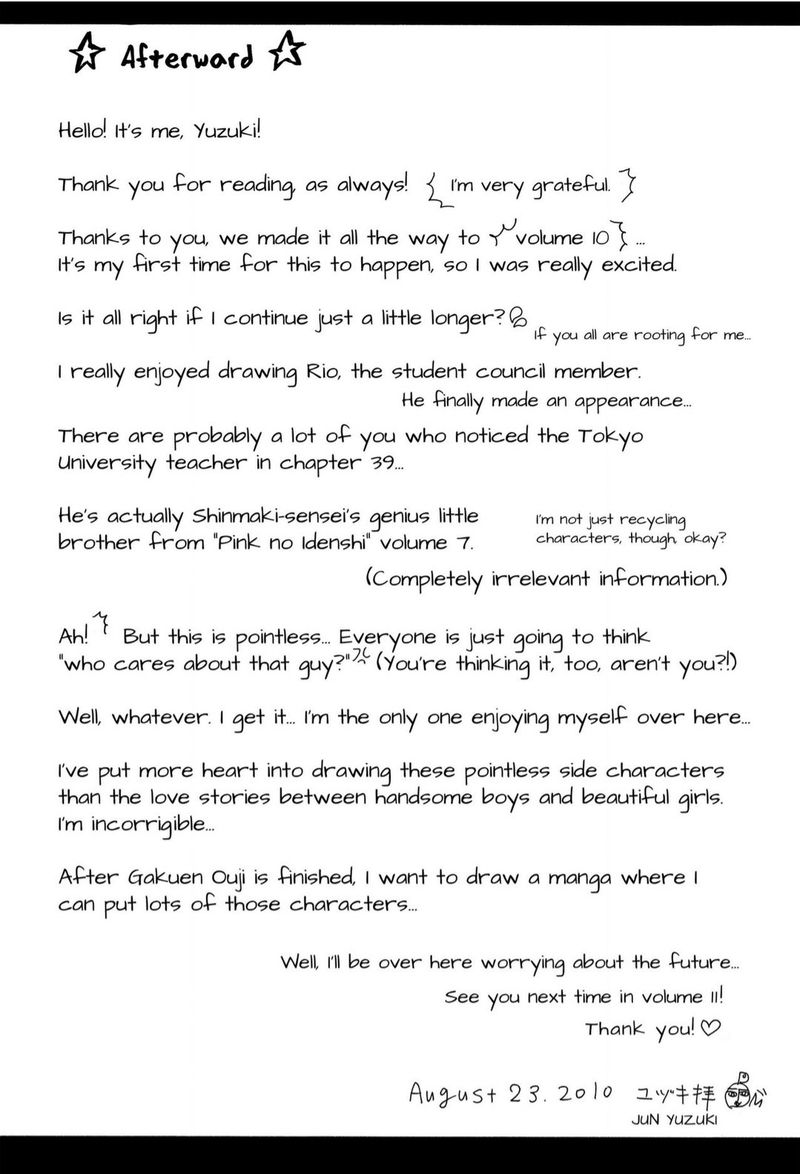 ☆ Afterward ☆
Hello! It's me, Yuzuki!
Thank you for reading, as always! I'm very grateful.
Thanks to you, we made it all the way to volume 10 ...
It's my first time for this to happen, so I was really excited.
Is it all right if I continue just a little longer?
If you all are rooting for me...
I really enjoyed drawing Rio, the student council member.
He finally made an appearance...
There are probably a lot of you who noticed the Tokyo
University teacher in chapter 39...
He's actually Shinmaki-sensei's genius little
brother from "Pink no Idenshi" volume 7.
I'm not just recycling
characters, though, okay?
(Completely irrelevant information.)
Ah! But this is pointless... Everyone is just going to think
"who cares about that guy?" (You're thinking it, too, aren't you?!)
Well, whatever. I get it... I'm the only one enjoying myself over here...
I've put more heart into drawing these pointless side characters
than the love stories between handsome boys and beautiful girls.
I'm incorrigible...
After Gakuen Ouji is finished, I want to draw a manga where I
can put lots of those characters...
Well, I'll be over here worrying about the future...
See you next time in volume 11!
Thank you! ♡
August 23. 2010 ユヅキ拝
JUN YUZUKI